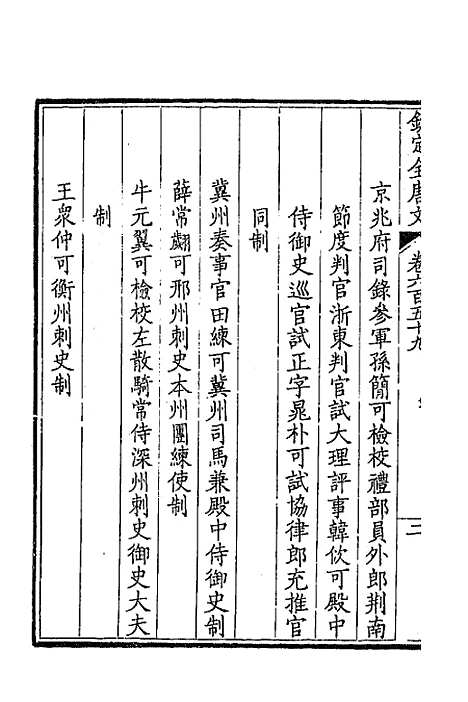 欽定全唐文 卷六百五十九 二
京兆府司錄參軍孫簡可檢校禮部員外郎荆南
節度判官浙東判官試大理評事韓佽可殿中
侍御史巡官試正字晁朴可試協律郎充推官
同制
冀州奏事官田練可冀州司馬兼殿中侍御史制
薛常翽可邢州刺史本州團練使制
牛元翼可檢校左散騎常侍深州刺史御史大夫
制
王衆仲可衡州刺史制